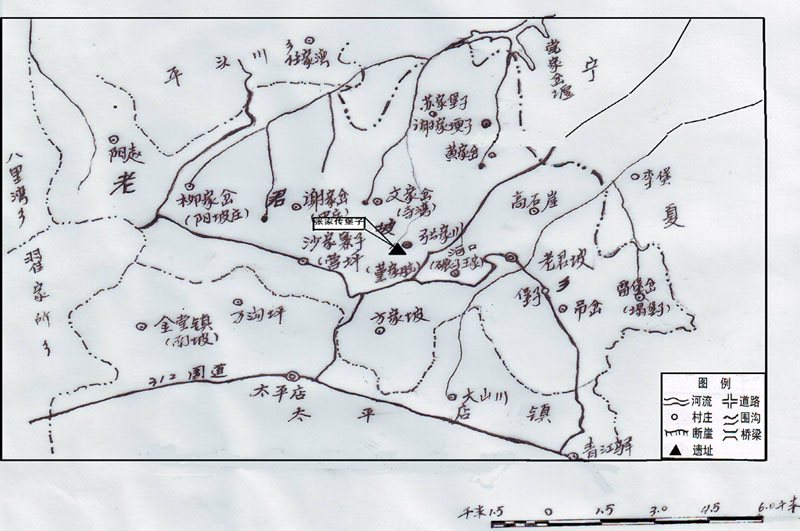 平头川乡
任家湾
党家岔堰
宁
夏
苏家堡子
谢家埂子
黄家岔
八里湾乡
阳赵
老
君
坡
乡
柳家岔
(阳坡庄)
谢家岔
文家岔
高石崖
李堡
张家川
沙家寨子
(营坪
(董家庄)
河口
老君坡
堡子
吊岔
翟家所乡
万沟坪
金堂镇
(南坡)
万家坡
312 国道
太平店
太 平 店 镇
大山川
青江驿
图 例
河流
道路
村庄
围沟
断崖
桥梁
遗址
千米 1.5 0 1.5 3.0 4.5 6.0千米